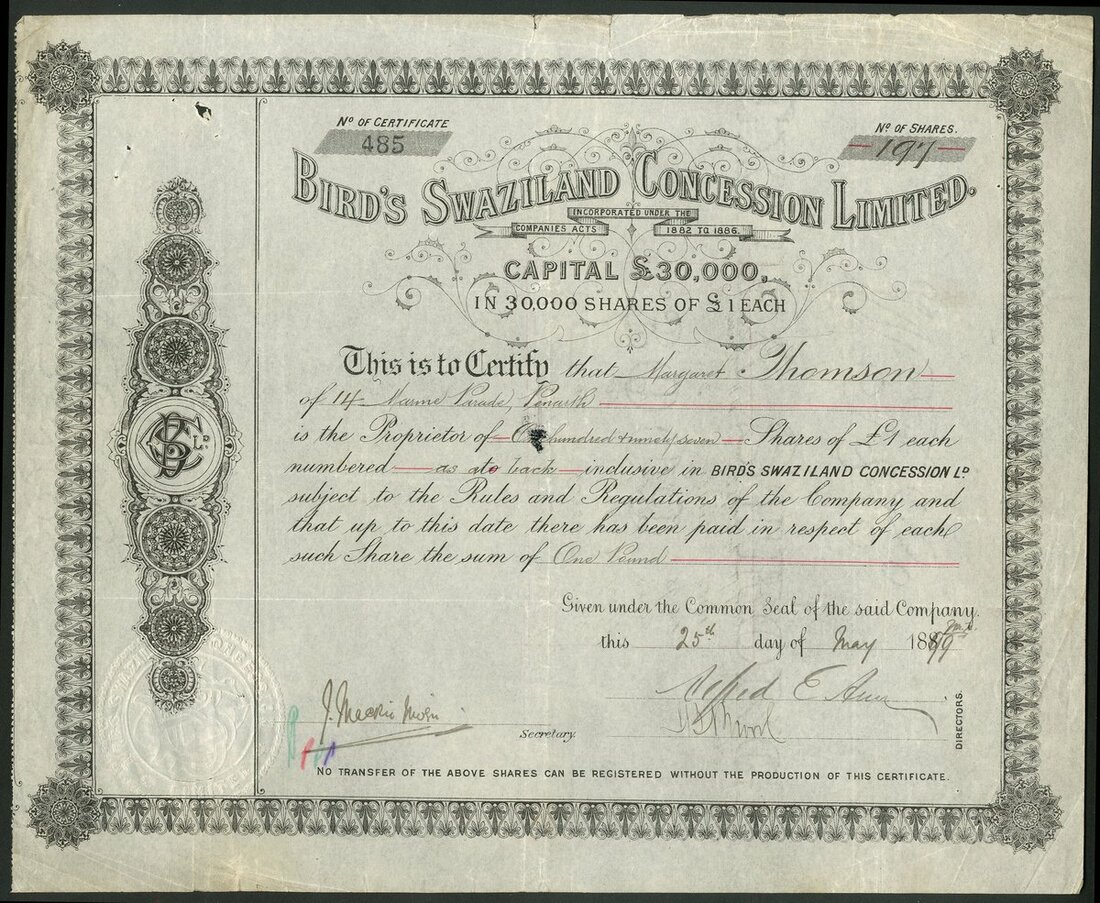 Nº OF CERTIFICATE
485
Nº OF SHARES.
197
BIRD'S SWAZILAND CONCESSION LIMITED.
INCORPORATED UNDER THE
COMPANIES ACTS 1882 TO 1886.
CAPITAL £30,000,
IN 30,000 SHARES OF £1 EACH
This is to Certify that Margaret Thomson
of 14 Parade, Penarth
is the Proprietor of One hundred & ninety seven Shares of £1 each
numbered as at back inclusive in BIRD'S SWAZILAND CONCESSION Lᴰ.
subject to the Rules and Regulations of the Company and
that up to this date there has been paid in respect of each
such Share the sum of One Pound
Given under the Common Seal of the said Company,
this 25th day of May 1889
Alfred E
DIRECTORS.
J. Mackie
Secretary.
NO TRANSFER OF THE ABOVE SHARES CAN BE REGISTERED WITHOUT THE PRODUCTION OF THIS CERTIFICATE.